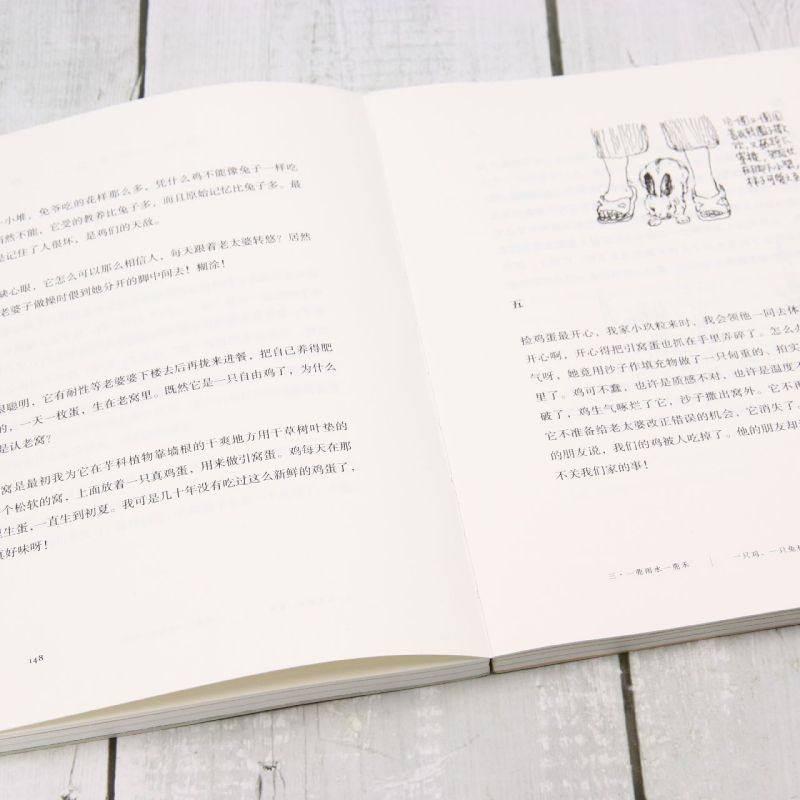 一小堆，兔爷吃的花样那么多，凭什么鸡不能像兔子一样吃
当然不能，它受的教养比兔子多，而且原始记忆比兔子多。最
是记住了人很坏，是鸡们的天敌。
缺心眼，它怎么可以那么相信人，每天跟着老太婆转悠？居然
老婆子做操时偎到她分开的脚中间去！糊涂！
很聪明，它有耐性等老婆婆下楼去后再拢来进餐，把自己养得肥
的，一天一枚蛋，生在老窝里。既然它是一只自由鸡了，为什么
是认老窝？
窝是最初我为它在芋科植物靠墙根的干爽地方用干草树叶垫的
个松软的窝，上面放着一只真鸡蛋，用来做引窝蛋。鸡每天在那
里生蛋，一直生到初夏。我可是几十年没有吃过这么新鲜的鸡蛋了，
真好味呀！
148
五
捡鸡蛋最开心，我家小玖粒来时，我会领他一同去体
开心啊，开心得把引窝蛋也抓在手里弄碎了。怎么办
气呀，她竟用沙子作填充物做了一只何重的、拍实
里了。鸡可不蠢，也许是质感不对，也许是温度不
破了，鸡生气啄烂了它，沙子撒出窝外。它不再
它不准备给老太婆改正错误的机会，它消失了。
的朋友说，我们的鸡被人吃掉了。他的朋友却
不关我们家的事！
三·一瓮雨水一瓮禾 ｜ 一只鸡、一只兔